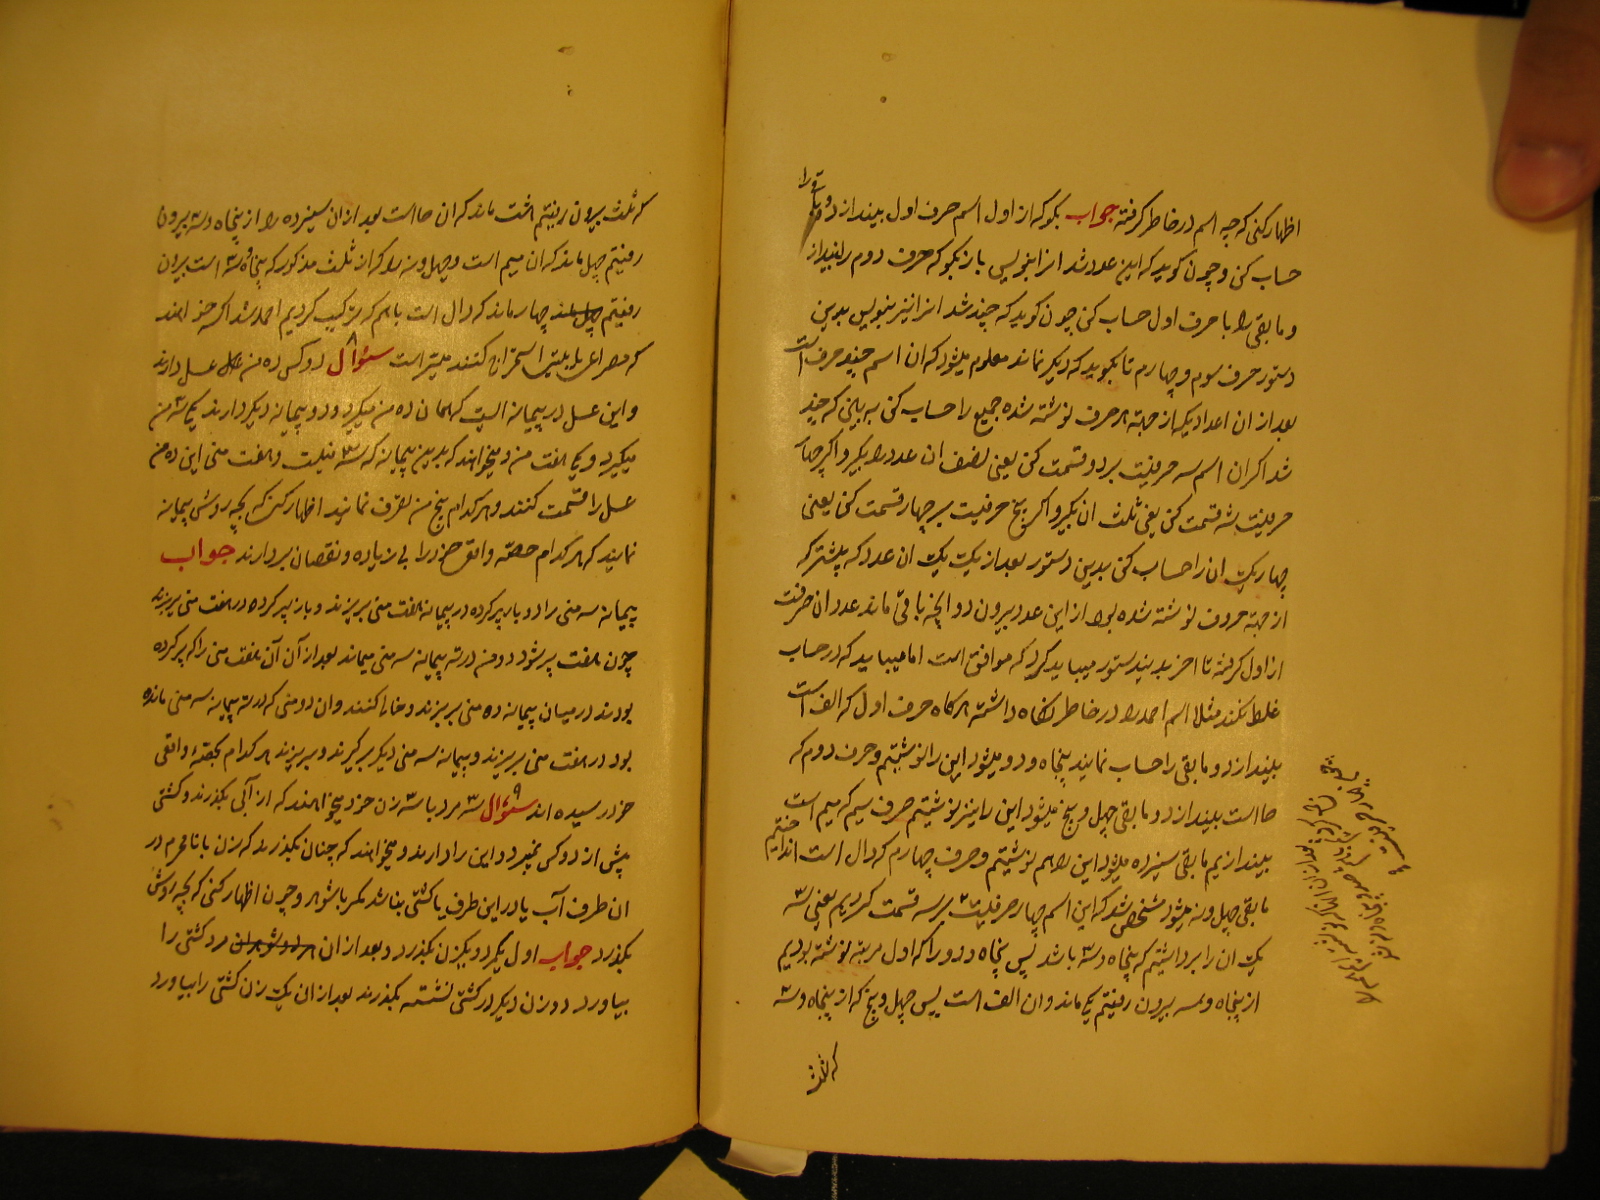 اظهار کنی که چه اسم در خاطر گرفته جواب بگو که از اول اسم حرف اول بیندازد و باقی را
حساب کن و چون گوید که این عدد شد انرا بنویس باز بگو که حرف دوم را بیندازد
و مابقی را با حرف اول حساب کن چون گوید که چند شد انرا نیز بنویس بدین
دستور حرف سوم و چهارم تا بگوید که دیگر نماند معلوم میشود که ان اسم چند حرف است
بعد از ان اعدادیکه از جهة هر حرف نوشته شده جمیع را حساب کن به بین که چند
شد اگر ان اسم سه حرفیست بر دو قسمت کن یعنی نصف ان عدد را بگیر و اگر چهار
حرفیست بسه قسمت کن یعنی ثلث ان بگیر و اگر پنج حرفیست بر چهار قسمت کن یعنی
چهار یک ان را حساب کن بدین دستور بعد از یک یک ان عدد که پیشتر که
از جهة حروف نوشته شده بود از این عدد بیرون رو انچه باقی ماند عدد ان حرفست
از اول گرفته تا اخر بدیندستور میباید کرد که موافق است اما میباید که در حساب
غلط نکند مثلا اسم احمد را در خاطر نگاه داشته هرگاه حرف اول که الف است
بیندازد و مابقی را حساب نمایند پنجاه و دو میشود این را نوشتیم و حرف دوم که
حا است بیندازد و مابقی چهل و پنج میشود این را نیز نوشتیم حرف سیم که میم است
بیندازیم مابقی سیزده میشود این را هم نوشتیم و حرف چهارم که دال است انداختیم
مابقی چهل و نه میشود مشخص شد که این اسم چهار حرفیست بر سه قسمت کردیم یعنی سه
یک ان را برداشتیم که پنجاه و سه باشد پس پنجاه و دو را که اول مرتبه نوشته بودیم
از پنجاه و سه بیرون رفتیم یک ماند و ان الف است پس چهل و پنج که از پنجاه و سه
که ثلث
که ثلث بیرون رفتیم هشت ماند که ان حا است بعد از ان سیزده را از پنجاه و سه بیرون
رفتیم چهل ماند که ان میم است و چهل و نه را که از ثلث مذکور که پنجاه و سه است بیرون
رفتیم چهار ماند که دال است باهم که ترکیب کردیم احمد شد اگر خواهند
که مصراعی یا بیتی استخراج کنند میسر است سئوال ۸ دو کس ده من عسل دارند
و این عسل در پیمانه ایست که همان ده من میگیرد و دو پیمانه دیگر دارند یکی سه من
میگیرد و یکی هفت من و میخواهند که بدین پیمانه که سه منیست و هفت منی این ده من
عسل را قسمت کنند و هر کدام پنج من تصرف نمایند اظهار کن که بچه روش پیمانه
نمایند که هر کدام حصه واقع خود را بی زیاده و نقصان بردارند جواب
پیمانه سه منی را دو بار پر کرده در پیمانه هفت منی بریزند و باز پر کرده در هفت منی بریزند
چون هفت پر شود دو من در ته پیمانه سه منی میماند بعد از آن آن هفت منی را که پر کرده
بودند در میان پیمانه ده منی بریزند و خالی کنند و ان دو منی که در ته پیمانه سه منی مانده
بود در هفت منی بریزند و پیمانه سه منی دیگر برگیرند و بریزند هر کدام بحصهء واقعی
خود رسیده اند سئوال ۹ سه مرد با سه زن خود میخواهند که از آبی بگذرند و کشتی
بیش از دو کس نمیبرد و این را دارند و میخواهند که چنان بگذرند که زن با نامحرم در
ان طرف آب یا در این طرف یا کشتی نباشد مگر با شوهر و چون اظهار کنی که بچه روش
بگذرد جواب اول یکمرد و یکزن بگذرد و بعد از ان مرد کشتی را
بیاورد و دو زن دیگر در کشتی نشسته بگذرند بعد از ان یک زن کشتی را بیاورد